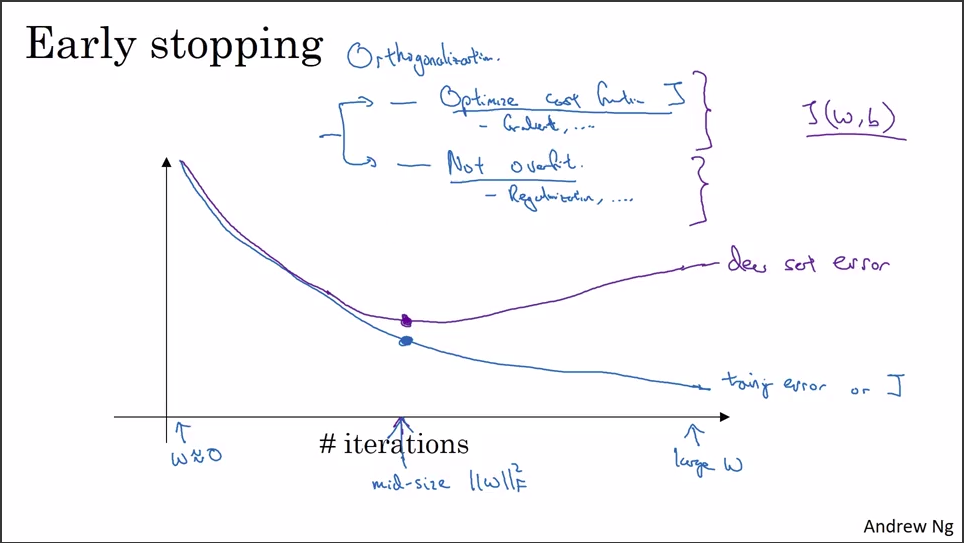 Early stopping
Orthogonalization.
— Optimize cost function J
- Gradient, ....
— Not overfit.
- Regularization, ....
J(w,b)
dev set error
training error or J
w≈0
# iterations
mid-size ||w||²_F
large w
Andrew Ng